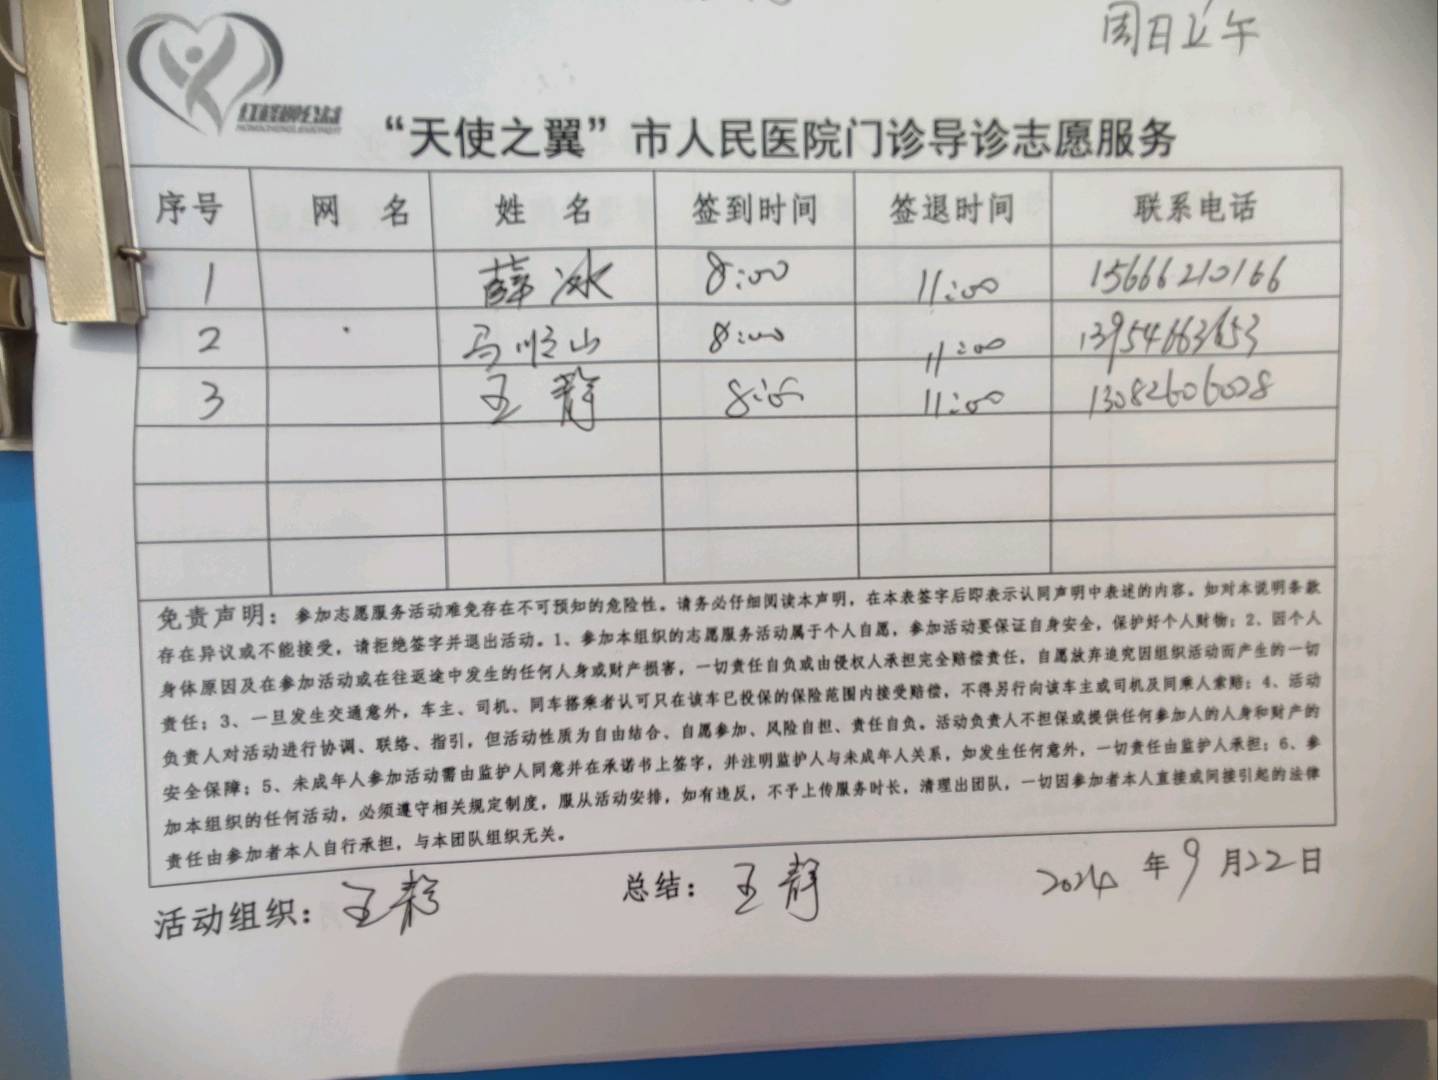 周日上午
红丝带公益
“天使之翼”市人民医院门诊导诊志愿服务
序号 网 名 姓 名 签到时间 签退时间 联系电话
1 薛冰 8:00 11:00 15666210166
2 马顺山 8:00 11:00 13954663653
3 王静 8:00 11:00 13082606028
免责声明：参加志愿服务活动难免存在不可预知的危险性。请务必仔细阅读本声明，在本表签字后即表示认同声明中表述的内容。如对本说明条款
存在异议或不能接受，请拒绝签字并退出活动。1、参加本组织的志愿服务活动属于个人自愿，参加活动要保证自身安全，保护好个人财物；2、因个人
身体原因及在参加活动或在往返途中发生的任何人身或财产损害，一切责任自负或由侵权人承担完全赔偿责任，自愿放弃追究因组织活动而产生的一切
责任；3、一旦发生交通意外，车主、司机、同车搭乘者认可只在该车已投保的保险范围内接受赔偿，不得另行向该车主或司机及同乘人索赔；4、活动
负责人对活动进行协调、联络、指引，但活动性质为自由结合、自愿参加、风险自担、责任自负。活动负责人不担保或提供任何参加人的人身和财产的
安全保障；5、未成年人参加活动需由监护人同意并在承诺书上签字，并注明监护人与未成年人关系，如发生任何意外，一切责任由监护人承担；6、参
加本组织的任何活动，必须遵守相关规定制度，服从活动安排，如有违反，不予上传服务时长，清理出团队，一切因参加者本人直接或间接引起的法律
责任由参加者本人自行承担，与本团队组织无关。
活动组织：王静 总结：王静 2024年9月22日